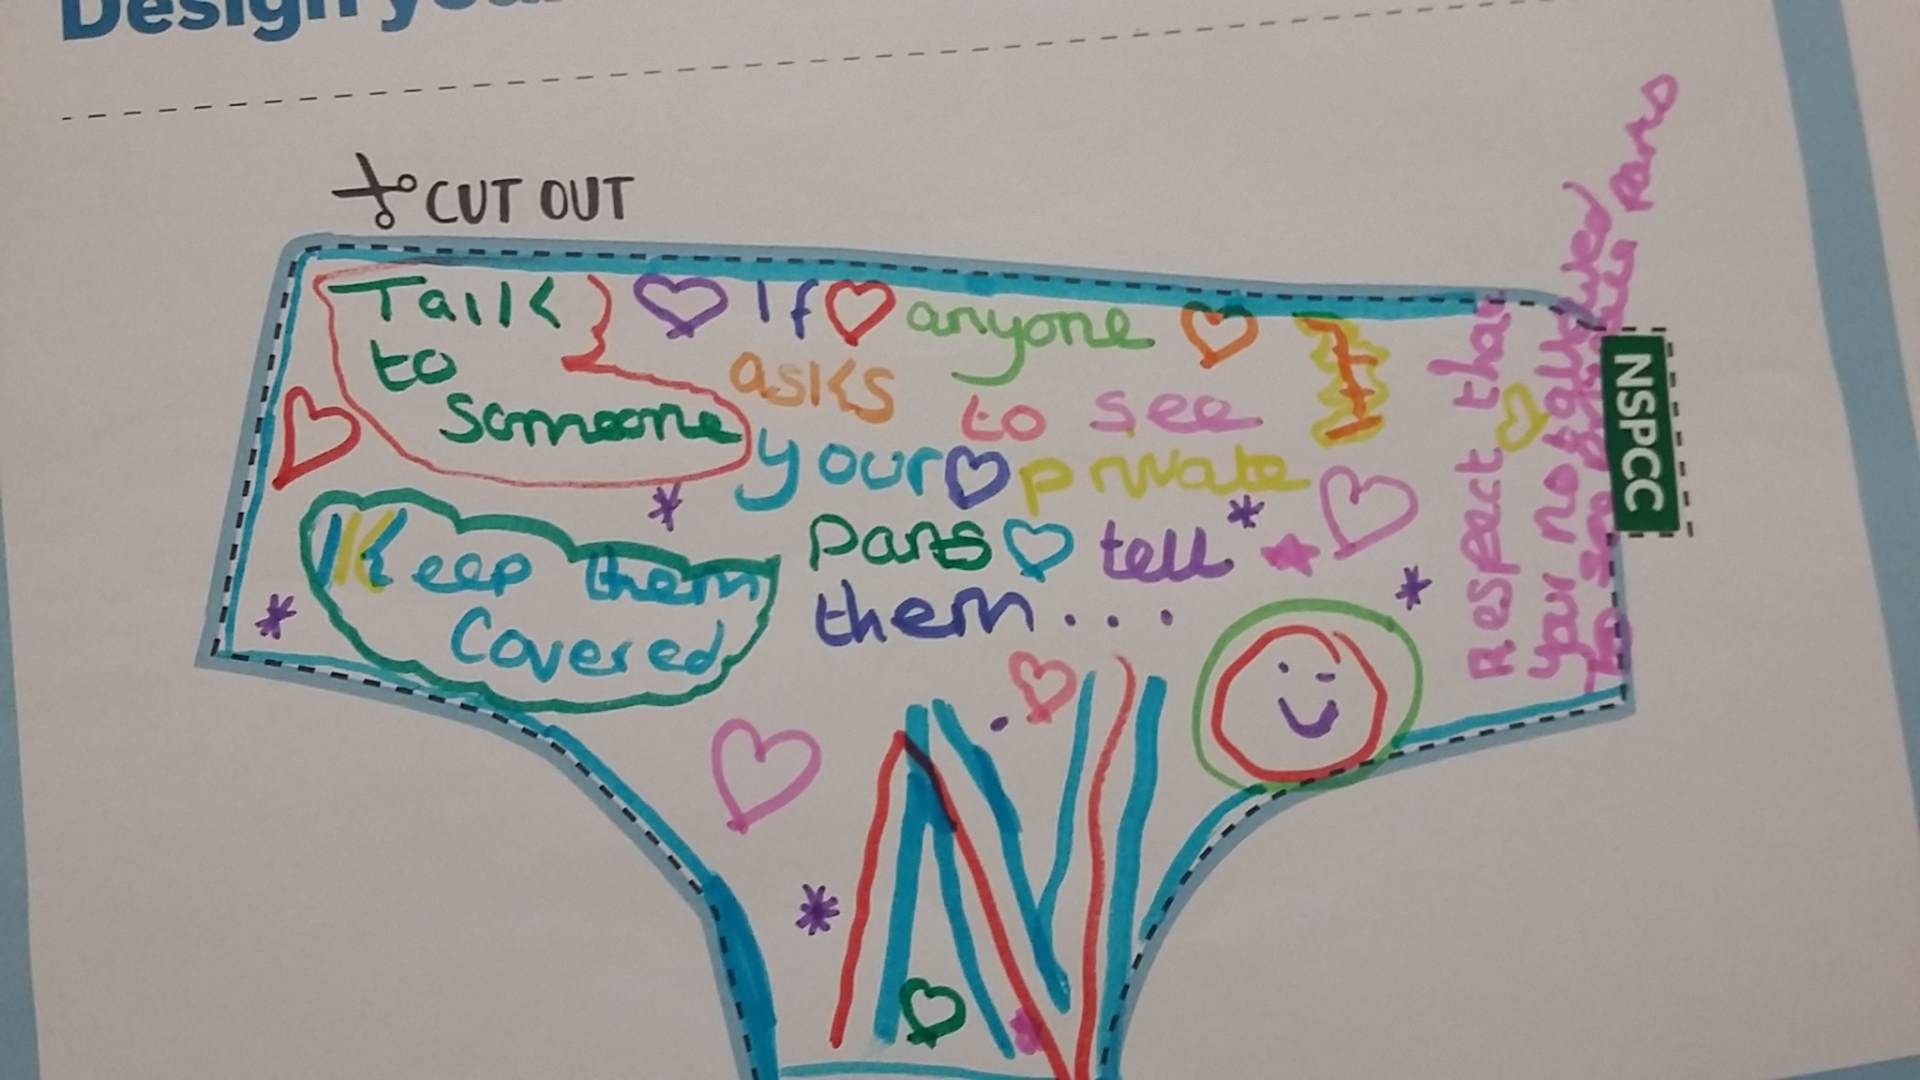 Design your
CUT OUT
Talk
to
someone
If anyone
asks to see
your private
parts tell
them...
Keep them
Covered
N
Respect that
your not allowed
To see private parts
NSPCC